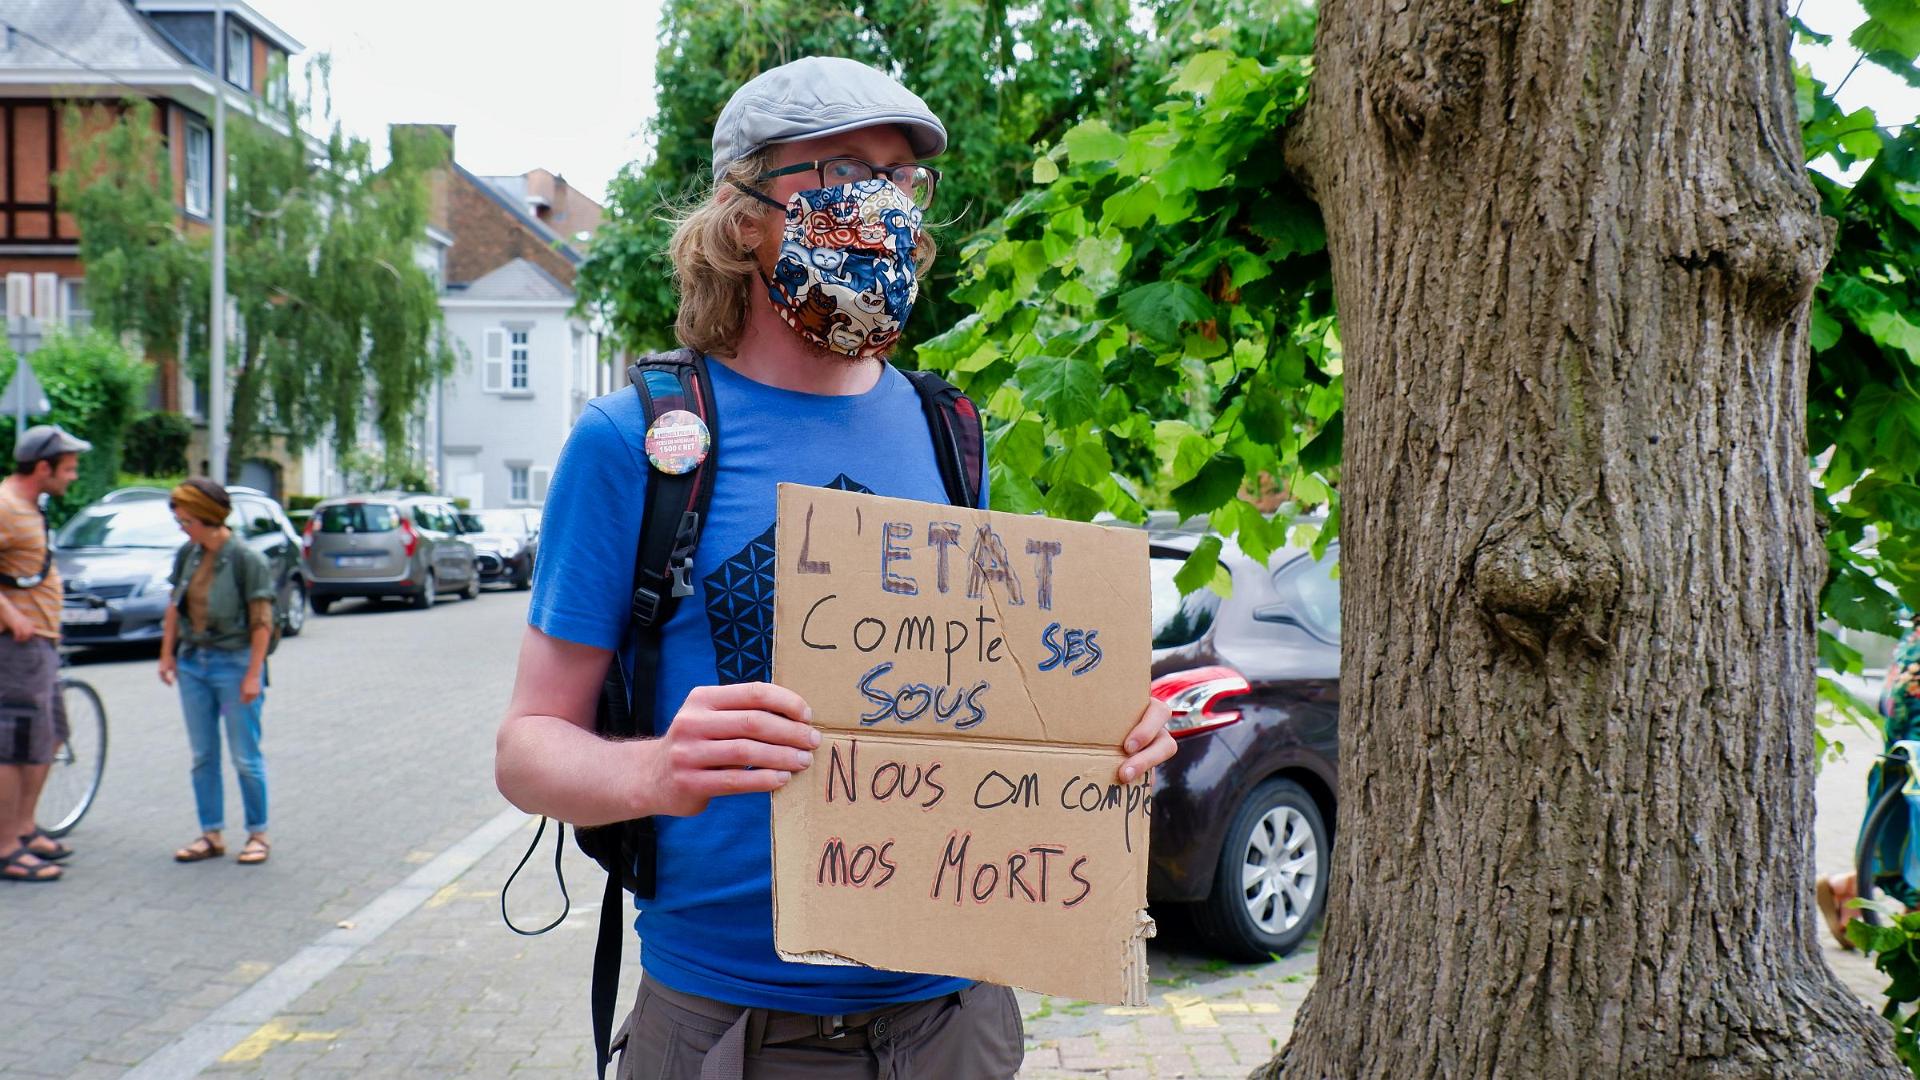 L'ETAT
Compte SES
SOUS
Nous on compte
mos MORTS
1500 € NET